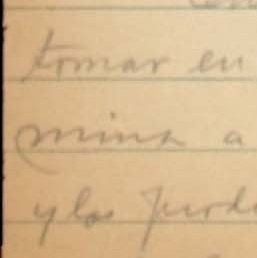 tomar en
mina a
y los